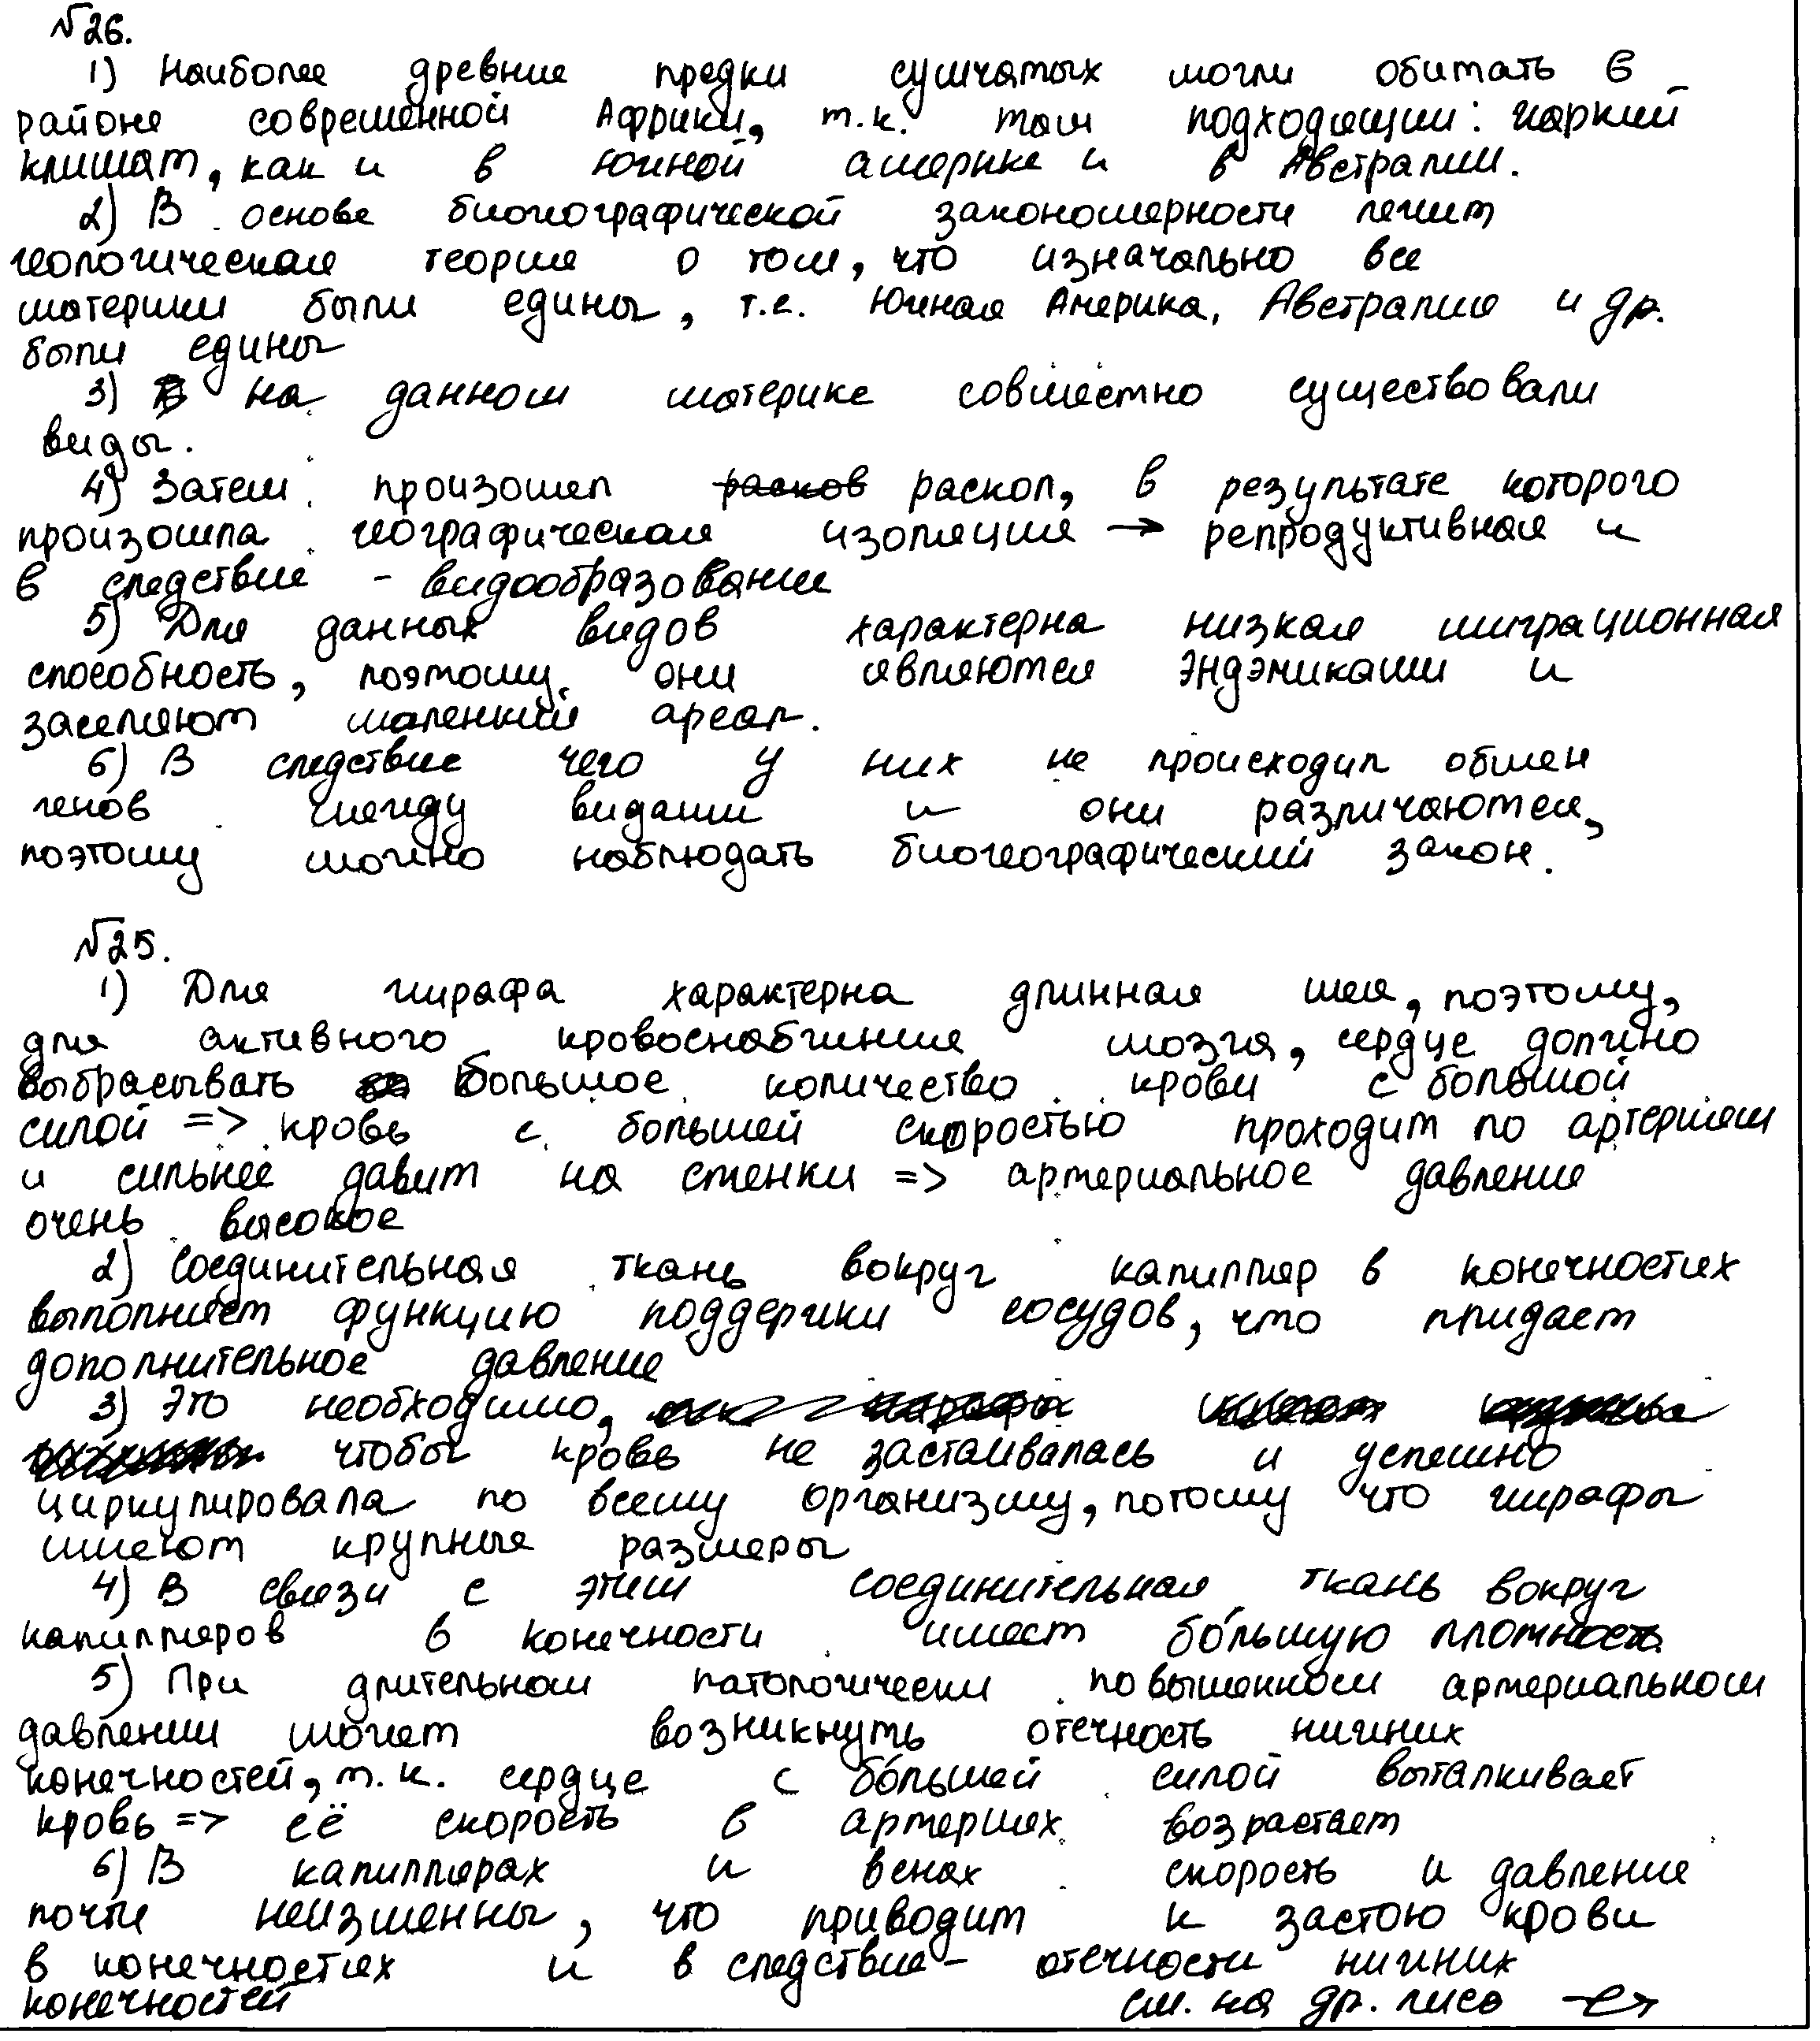 №26.
1) Наиболее древние предки сумчатых могли обитать в
районе современной Африки, т.к. там подходящий: жаркий
климат, как и в южной америке и в Австралии.
2) В основе биогеографической закономерности лежит
геологическая теория о том, что изначально все
материки были едины, т.е. Южная Америка, Австралия и др.
были едины
3) на данном материке совместно существовали
виды.
4) Затем произошел раскол, в результате которого
произошла географическая изоляция → репродуктивная и
в следствие - видообразование
5) Для данных видов характерна низкая миграционная
способность, поэтому они являются эндэмиками и
заселяют маленкий ареал.
6) В следствие чего у них не происходил обмен
генов между видами и они различаются,
поэтому можно наблюдать биогеографический закон.
№25.
1) Для жирафа характерна длинная шея, поэтому,
для активного кровоснабжения мозга, сердце должно
выбрасывать большое количество крови с большой
силой => кровь с большей скоростью проходит по артериям
и сильнее давит на стенки => артериальное давление
очень высокое
2) Соединительная ткань вокруг капилляр в конечностях
выполняет функцию поддержки сосудов, что придает
дополнительное давление
3) Это необходимо,
чтобы кровь не застаивалась и успешно
циркулировала по всему организму, потому что жирафы
имеют крупные размеры
4) В связи с этим соединительная ткань вокруг
капилляров в конечности имеет бо́льшую плотность
5) При длительном патологически повышенном артериальном
давлении может возникнуть отечность нижних
конечностей, т.к. сердце с бо́льшей силой выталкивает
кровь => её скорость в артериях возрастает
6) В капиллярах и венах скорость и давление
почти неизменны, что приводит к застою крови
в конечностях и в следствие - отечности нижних
конечностей см. на др. лисо